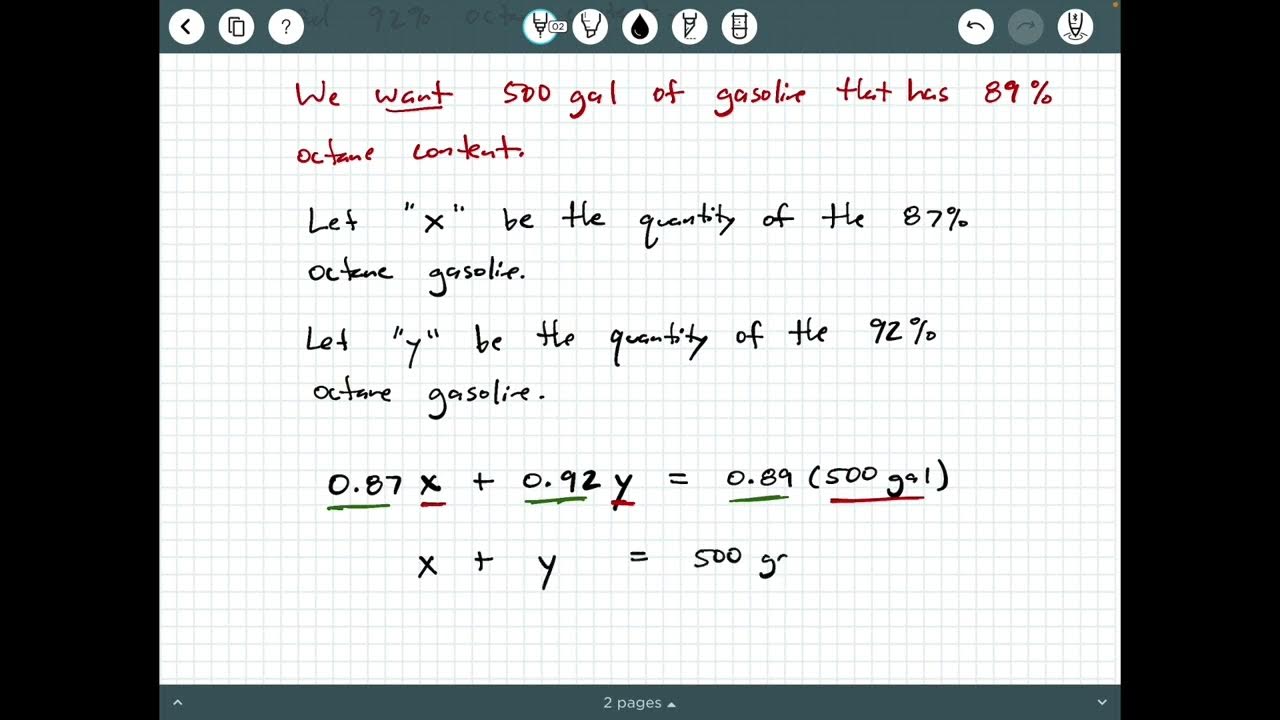 92% oct
?
02
We want 500 gal of gasoline that has 89%
octane content.
Let "x" be the quantity of the 87%
octane gasoline.
Let "y" be the quantity of the 92%
octane gasoline.
0.87 x + 0.92 y = 0.89 (500 gal)
x + y = 500 g
2 pages